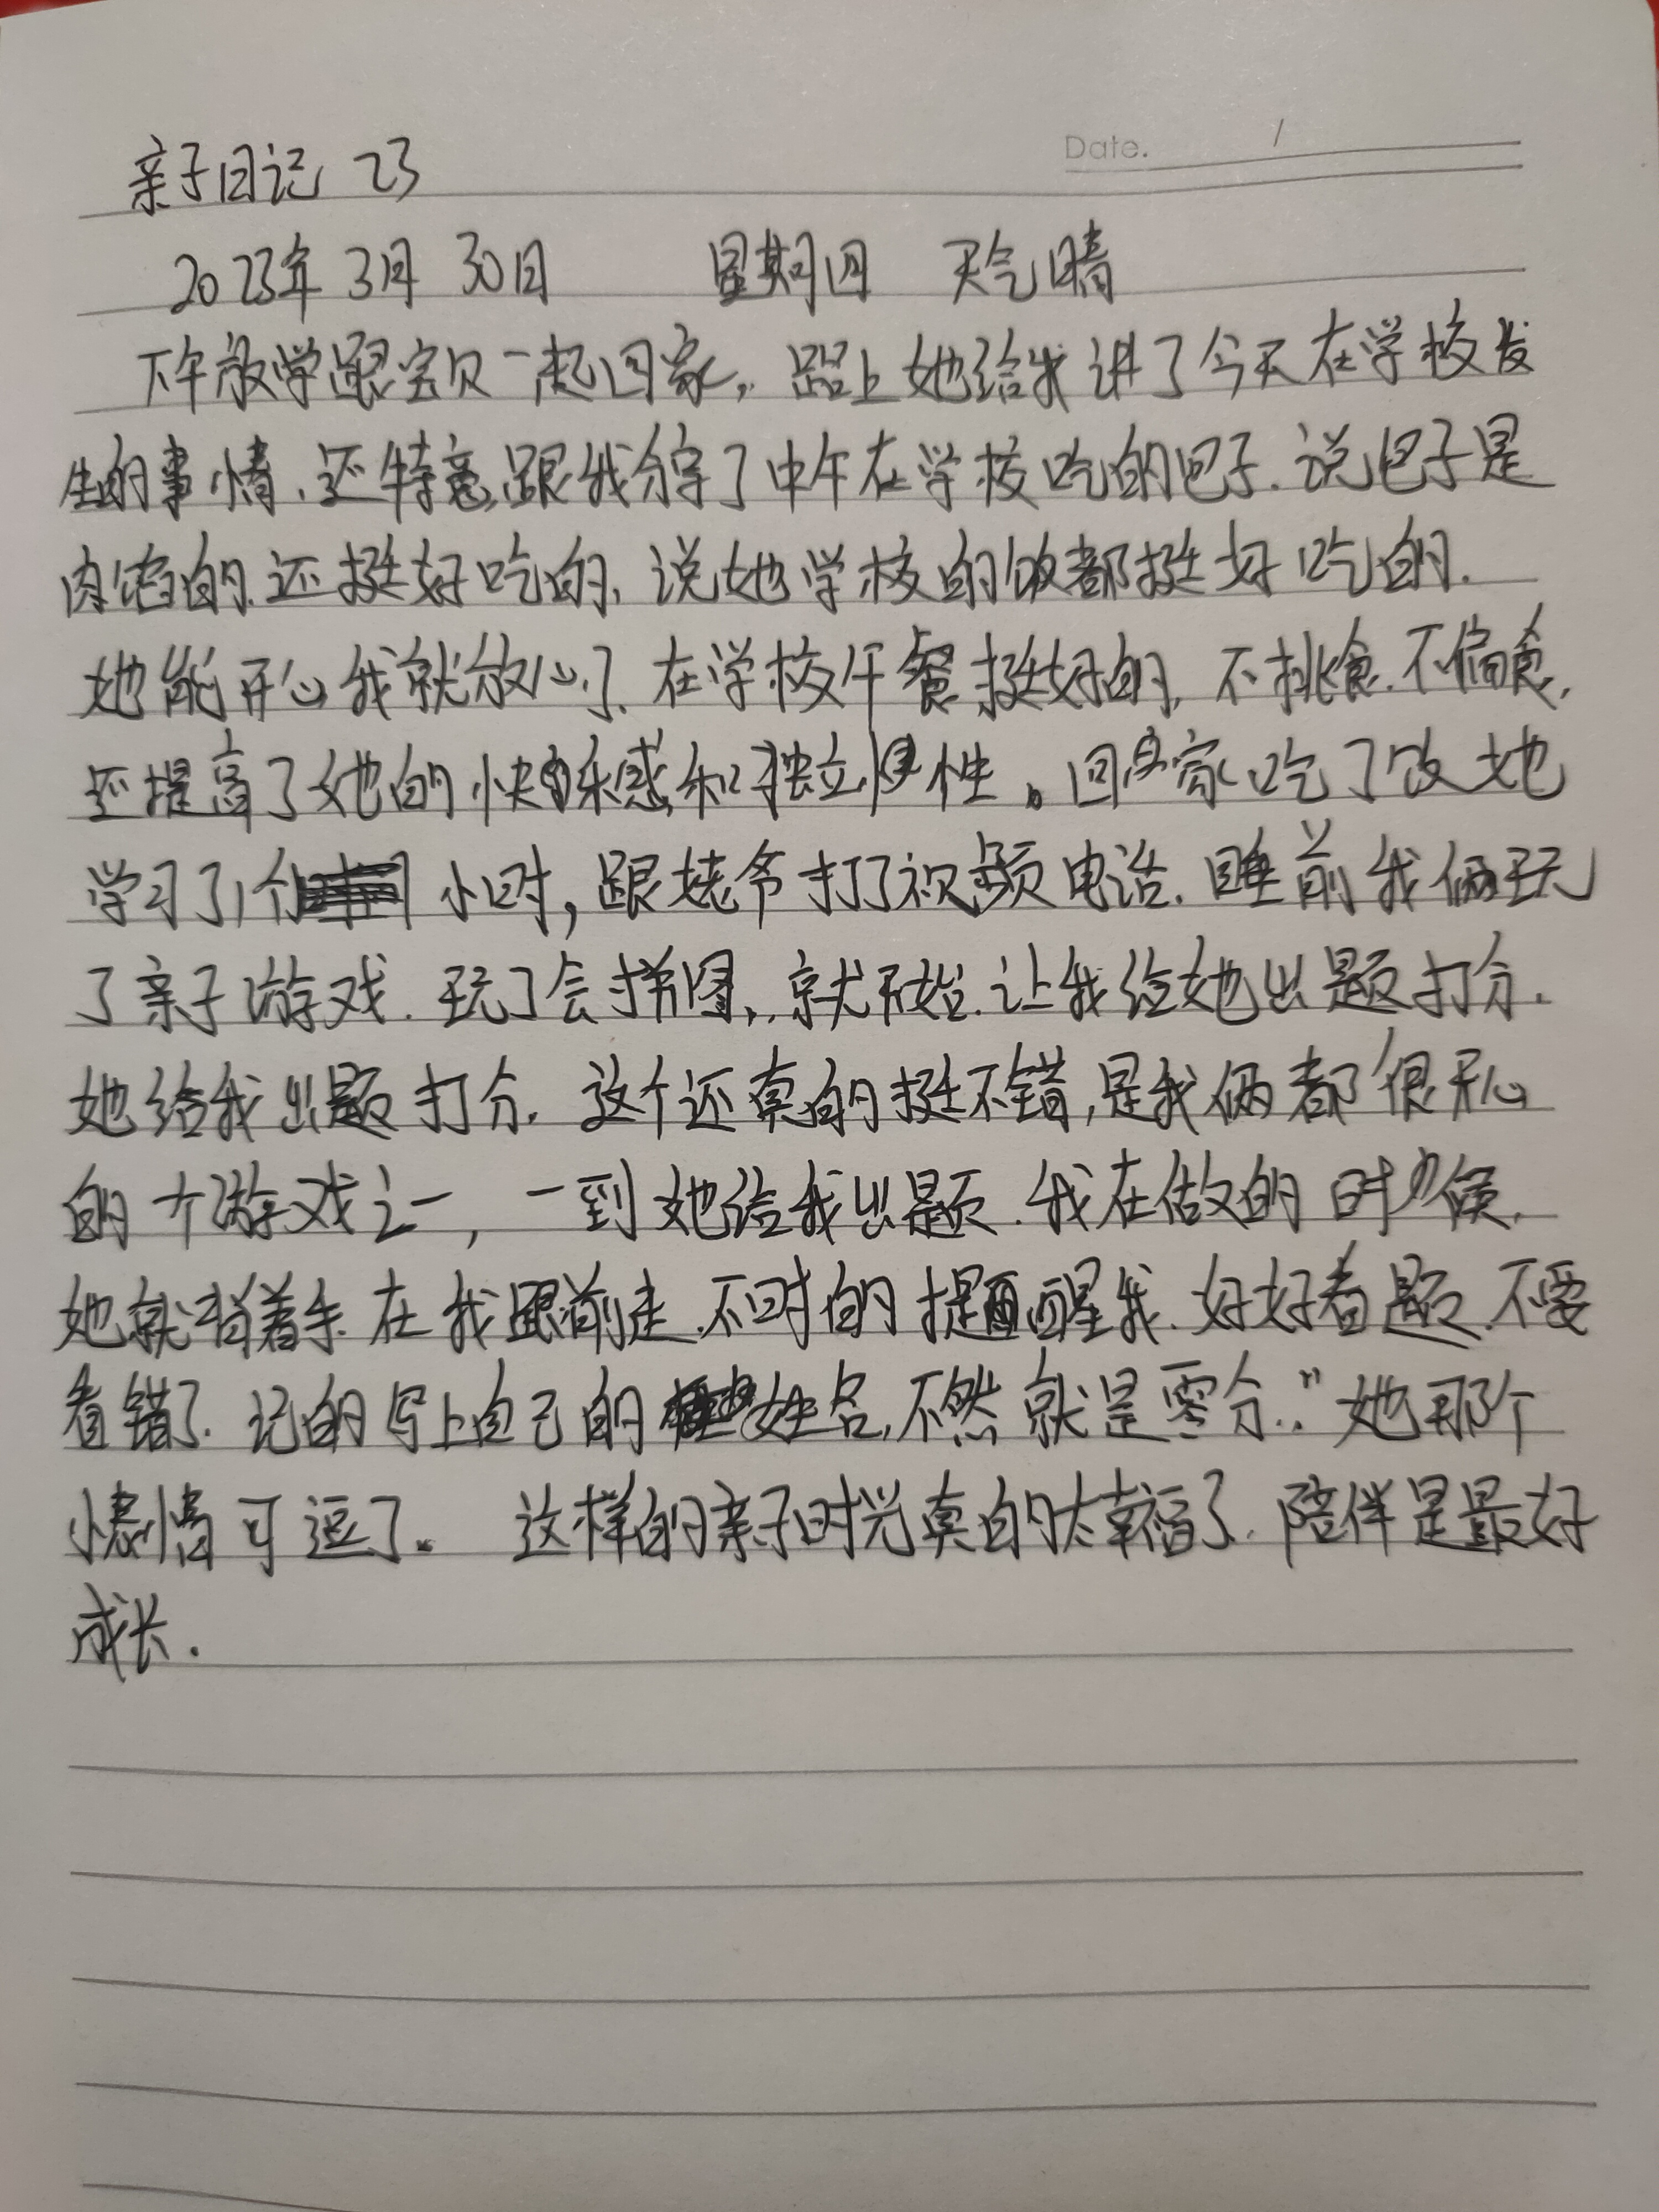 Date. /
亲子日记 23
2023年 3月 30日 星期四 天气晴
下午放学跟宝贝一起回家,. 路上她给我讲了今天在学校发
生的事情.还特意跟我分享了中午在学校吃的包子.说包子是
肉馅的.还挺好吃的,说她学校的饭都挺好吃的.
她能开心我就放心了.在学校午餐挺好的,不挑食.不偏食,
还提高了她的快乐感和独立性。回家吃了饭她
学习了1个小时,跟姥爷打了视频电话.睡前我俩玩
了亲子游戏.玩了会拼图,.就开始.让我给她出题打分.
她给我出题打分.这个还真的挺不错,是我俩都很开心
的个游戏之一,一到她给我出题.我在做的时候,
她就背着手在我跟前走.不时的提醒我.好好看题.不要
看错了.记的写上自己的姓名,不然就是零分.."她那个
小表情可逗了。 这样的亲子时光真的太幸福了.陪伴是最好
成长.